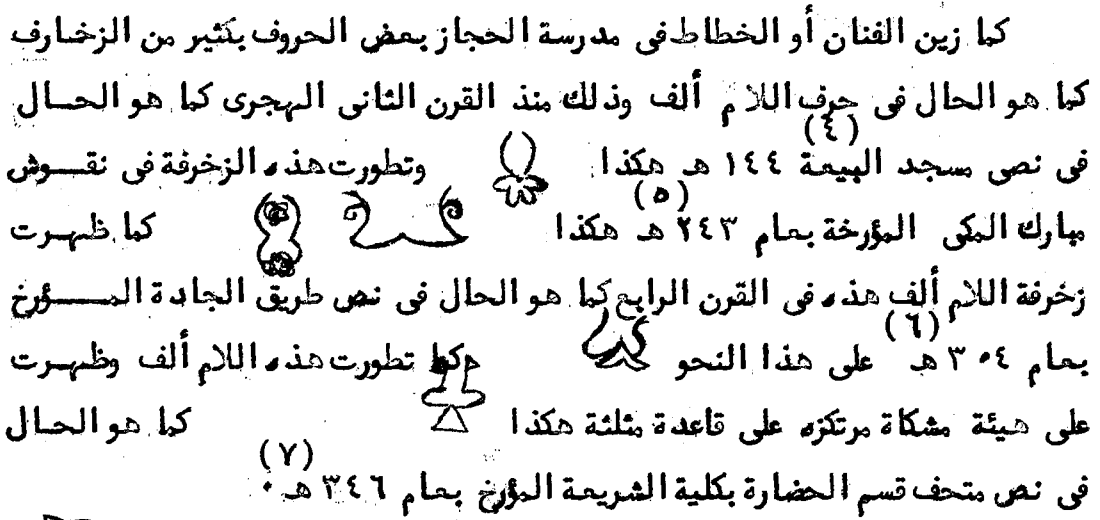 كما زين الفنان أو الخطاط فى مدرسة الحجاز بعض الحروف بكثير من الزخارف
كما هو الحال فى حرف اللام ألف وذلك منذ القرن الثانى الهجرى كما هو الحال
فى نص مسجد البيعة (٤) ١٤٤ هـ هكذا وتطورت هذه الزخرفة فى نقوش
مبارك المكى المؤرخة بعام ٢٤٣ هـ (٥) هكذا كما ظهرت
زخرفة اللام ألف هذه فى القرن الرابع كما هو الحال فى نص طريق الجادة المؤرخ
بعام ٣٠٤ هـ (٦) على هذا النحو وكما تطورت هذه اللام ألف وظهرت
على هيئة مشكاة مرتكزه على قاعدة مثلثة هكذا كما هو الحال
فى نص متحف قسم الحضارة بكلية الشريعة المؤرخ بعام ٣٤٦ هـ (٧) ٠